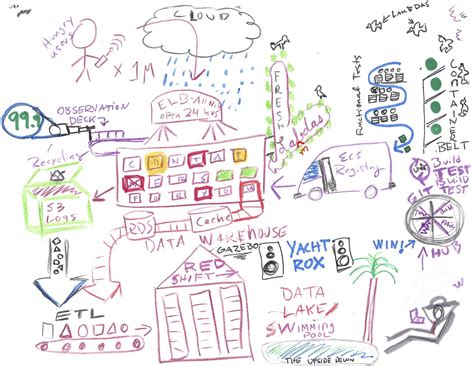 CLOUD
Hungry
users
x 1M
LAMBDAS
99.9
OBSERVATION
DECK
ELB-Allini
open 24 hrs
FRESH
Lambdas
Functional Tests
CONTAINER
BELT
Recycling
S3
Logs
CONTA
ECS
Registry
Build
TEST
Build
TEST
RDS
Cache
DATA WAREHOUSE
GAZEBO
YACHT
ROX
WIN!
HUB
RED
SHIFT
ETL
DATA
LAKE
SWIMMING
POOL
THE UPSIDE DOWN